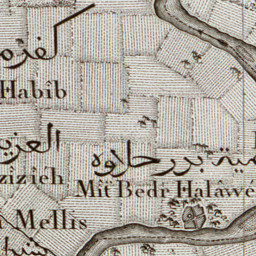 كفر
Habîb
العزيز
zizieh
مية بدر حلاوه
Mît Bedr Halâwe
Mellis